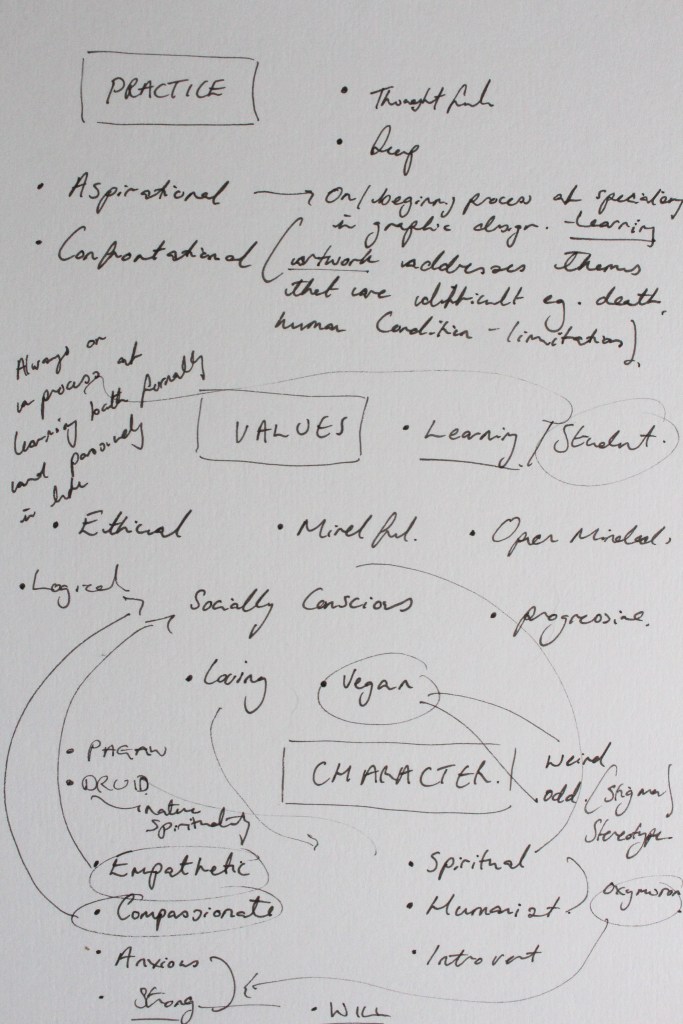 PRACTICE
• Thoughtful
• Deep
• Aspirational → On/beginning process of specialising
in graphic design. - Learning
• Confrontational (artwork addresses themes
that are difficult eg. death,
human Condition - limitations).
Always on
in process of
learning both formally
and passively
in life
VALUES
• Learning / Student.
• Ethical
• Mindful.
• Open Minded.
• Logical
Socially Conscious
• progressive.
• Loving
• Vegan
• PAGAN
• DRUID
nature
spirituality
CHARACTER.
weird
odd (Stigma)
Stereotype
• Empathetic
• Spiritual
• Compassionate
• Humanist
oxymoron
• Anxious
• Introvert
• Strong
• WILL